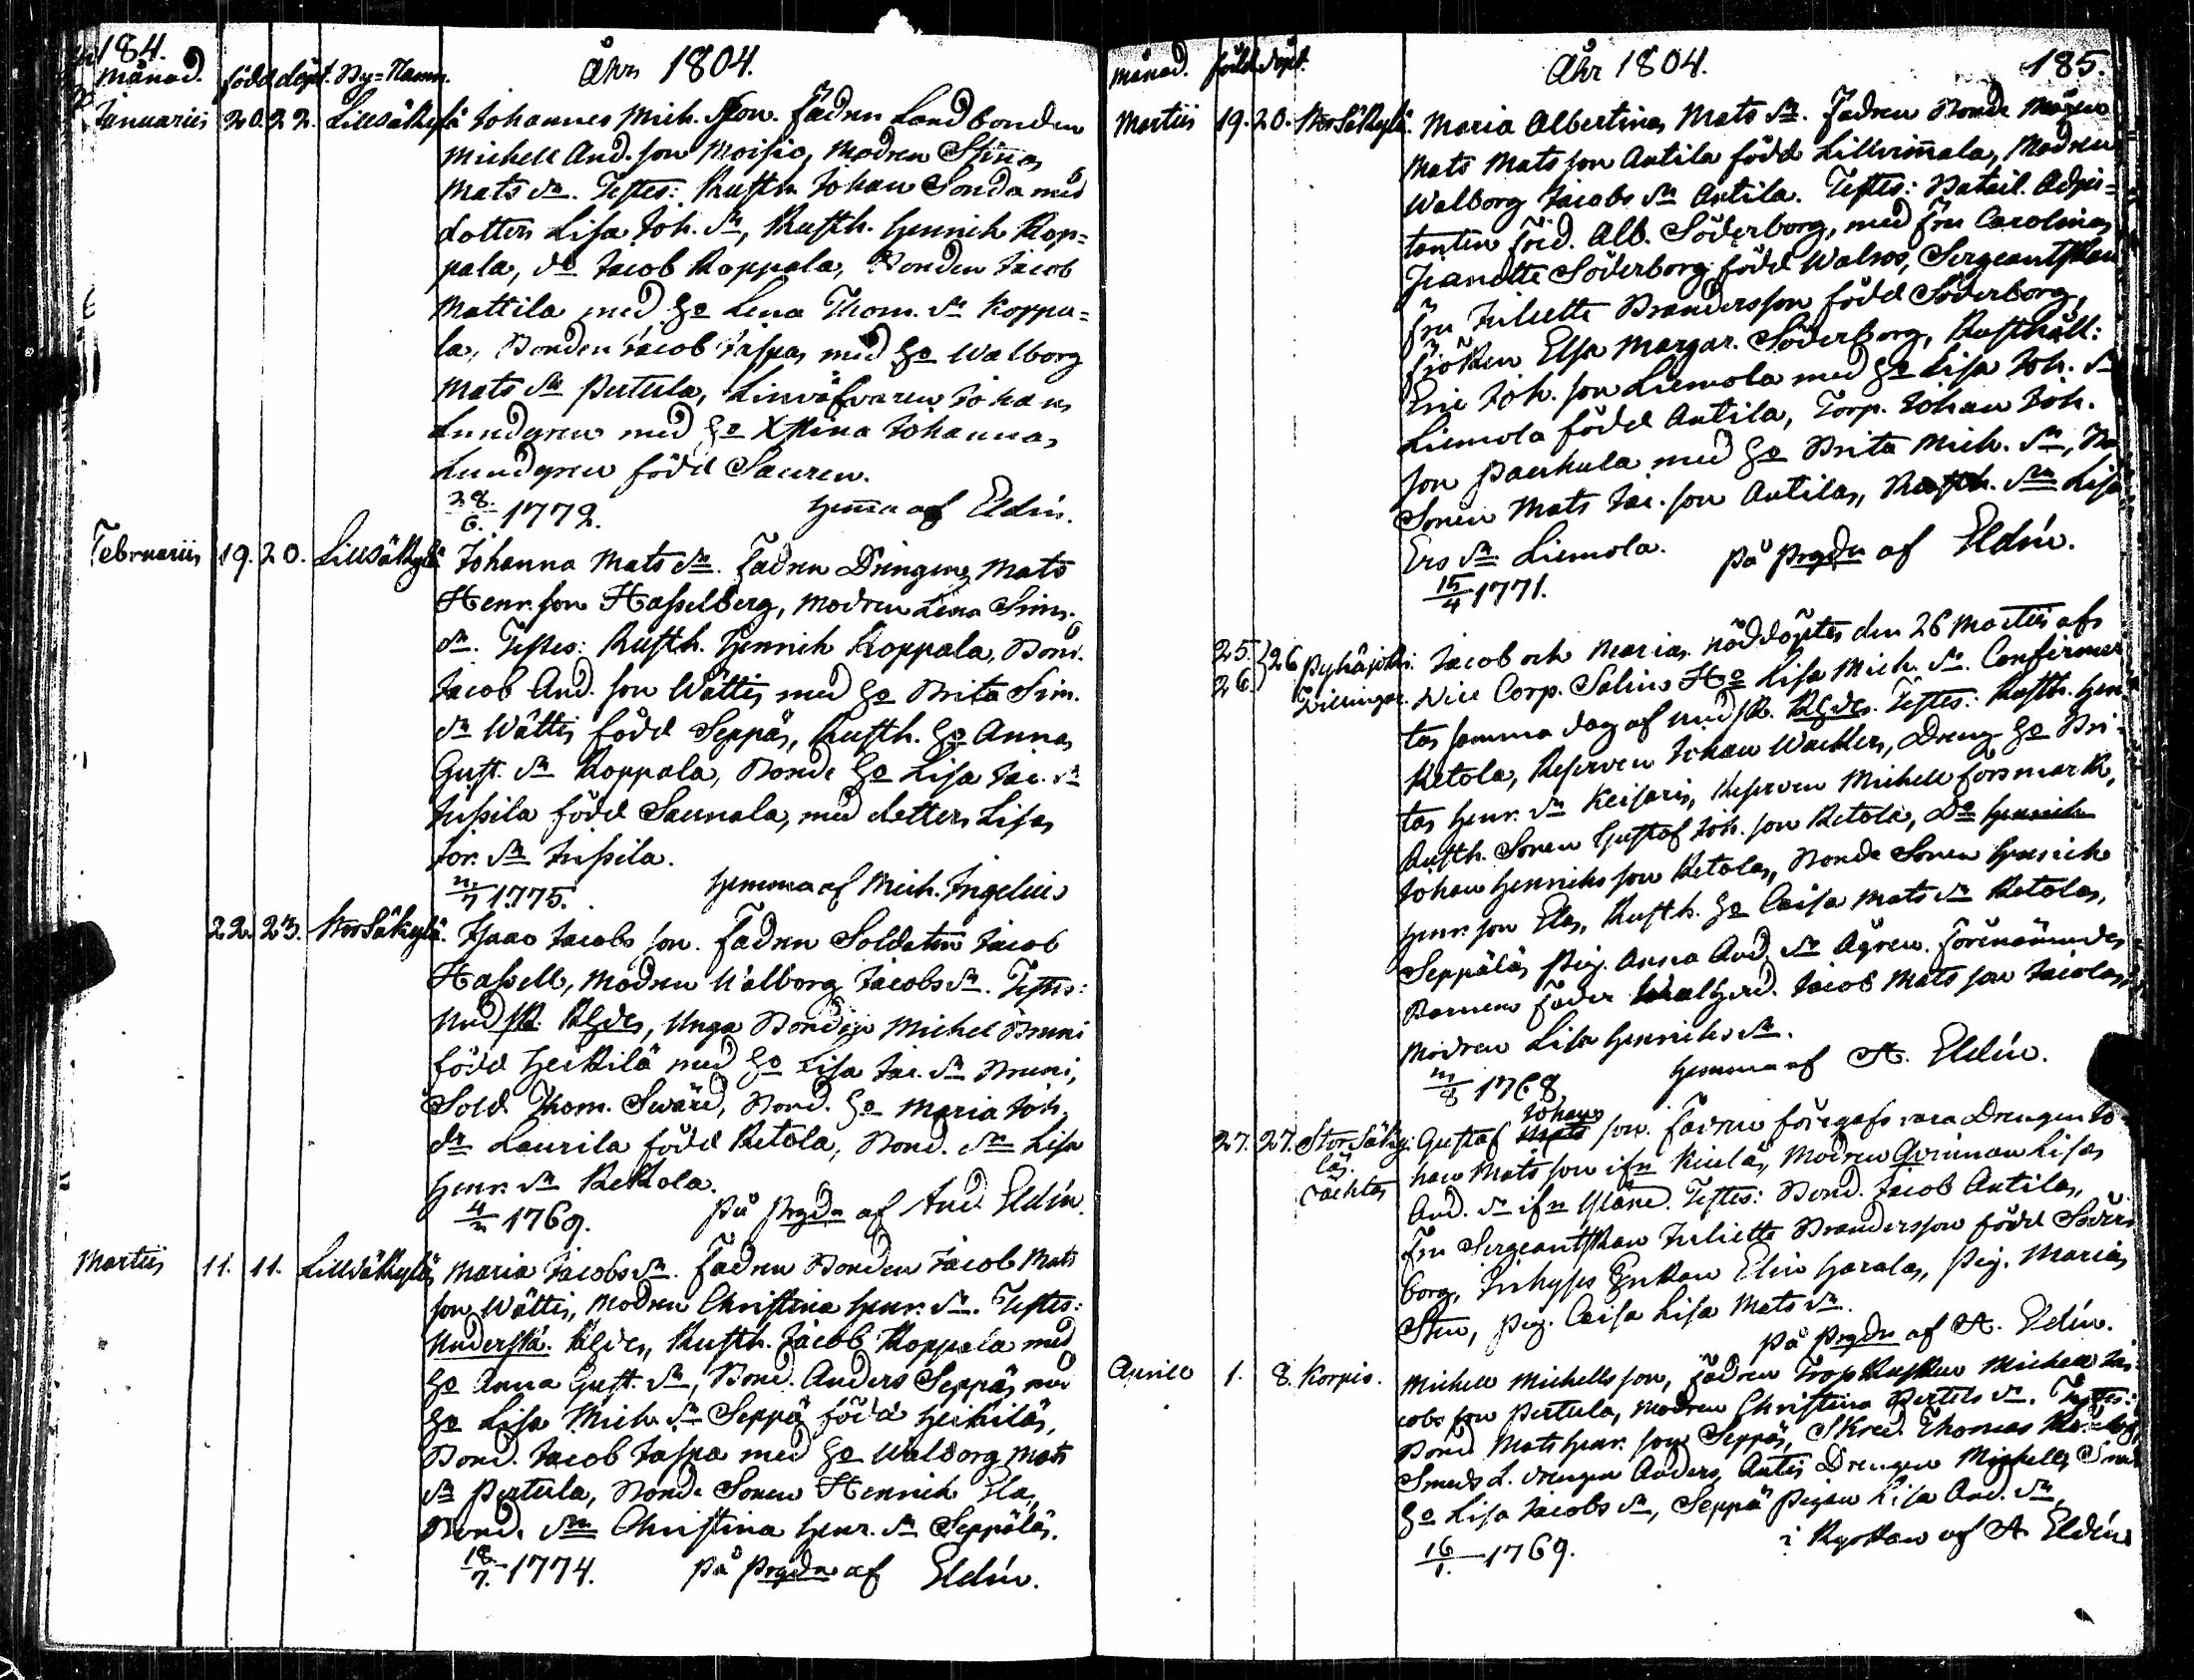 184.
Månad. född döpt. By=Namn. Åhr 1804.
Januarii 20. 22. Lillsäkylä Johannes Mich. Son. Fadren Landbonden
Michell And. son Moisio, Modren Stina
Mats dr. Testes: Rusth. Johan Sonda med
dotter Lisa Joh. dr, Rusth. Henrich Kop=
pala, do Jacob Koppala, Bonden Jacob
Mattila med Ho Lena Thom. dr Koppa=
la, Bonden Jacob Jaspa med Ho Walborg
Mats dr Pertula, Linväfvaren Johan
Lundgren med Ho Xstina Johanna
Lundgren född Sauren.
28/6. 1772. hema af Eldin.
Februarii 19. 20. Lillsäkylä Johanna Mats dr. Fadren Drengen Mats
Henr. son Hasselberg, Modren Lena Sim.
dr. Testes: Rusth. Henrich Koppala, Bond.
Jacob And. son Wättis med Ho Brita Sim.
dr Wättis född Seppä, Rusth. Ho Anna
Gust. dr Koppala, Bonde Ho Lisa Jac. dr
Jussila född Saunala, med dotter Lisa
Jor. dr Jussila.
1775. hemma af Mich. Ingelius
22. 23. StorSäkylä. Isaac Jacobs son. Fadren Soldaten Jacob
Hassell, Modren Walborg Jacobs dr. Testes:
Und sk. Unga Bonden Michel Bruni
född Heikilä med Ho Lisa Jac. dr Bruni,
Sold. Thom. Swärd, Bond. Ho Maria Joh.
dr Laurila född Ketola, Bond. dr Lisa
Henr. dr Ketola.
1769. på Prgdn af And. Eldin.
Martii 11. 11. Lillsäkylä Maria Jacobs dr. Fadren Bonden Jacob Mats
son Wättis, Modren Christina Henr. dr. Testes:
Underskr. Rusth. Jacob Koppala med
Ho Anna Gust. dr, Bond. Anders Seppä med
Ho Lisa Mich. dr Seppä född Heikilä,
Bond. Jacob Jaspa med Ho Walborg Mats
dr Pertula, Bonde Sonen Henrich Ela,
Bond. dr Christina Henr. dr Seppälä.
18/7. 1774. på Prgdn af Eldin.
Månad. född döpt. Åhr 1804. 185.
Martii 19. 20. StorSäkylä. Maria Albertina Mats dr. Fadren Bonde
Mats Mats son Antila född Lillvinnala, Modren
Walborg Jacobs dr Antila. Testes: Batail. Adju=
tanten Fred. Alb. Söderborg, med Fru Carolina
Jeanette Söderborg född Walros, Sergeantskan
Fru Juliette Brandersson född Söderborg,
Fröken Elsa Margar. Söderborg, Rusthåll:
Eric Joh. son Liemola med Ho Lisa Joh. dr
Liemola född Antila, Torp. Johan Joh.
son Paukula med Ho Brita Mich. dr,
Sonen Mats Jac. son Antila, Rusth. dr Lisa
Ers dr Liemola. på Prgdn af Eldin.
15/4 1771.
25. 26. } 26 Pyhäjoki. Jacob och Maria, nöddöptes den 26 Martii afs
Tvillingar. Vice Corp. Salins Ho Lisa Mich. dr. Confirmer
tas samma dag af und sk. Testes: Rusth. Hen.
Ketola, Reserven Johan Wachler, Dreng Ho Bri
tas Henr. dr Keisaris, Reserven Michell Forsmark,
Rusth. Sonen Gustaf Joh. son Ketola, Do
Johan Henrichs son Ketola, Bonde Sonen Henrich
Henr. son Ela, Rusth. Ho Caisa Mats dr Ketola,
Seppälä, Pig. Anna And. dr Ågren. Förenämnde
Barnens Fader Jacob Mats son Jaicola,
Modren Lisa Henrichs dr.
1768 hemma af A. Eldin.
27. 27. StorSäky: Gustaf Johans son. Fadren föregafs vara Drengen Jo
lä. han Mats son ifn Kiula, Modren Qvinnan Lisa
oächta And. dr ifn Yläne. Testes: Bond. Jacob Antila,
Fru Sergeantskan Juliette Brandersson född Söder
borg, Inhyses Enkan Elin Harala, Pig. Maria
Sten, Pig. Caisa Lisa Mats dr.
på Prgdn af A. Eldin.
Aprill 1. 8. Korpis. Michell Michells son, Fadren Michell Ja
cobs son Pertula, Modren Christina Bertels dr. Testes:
Bond Mats Henr. son Seppä, Skred. Thomas
Smeds L. drengen Anders Antis Drengen Michells
Ho Lisa Jacobs dr, Seppä Pigan Lisa And. dr
16/1. 1769. i Kyrkan af A. Eldin